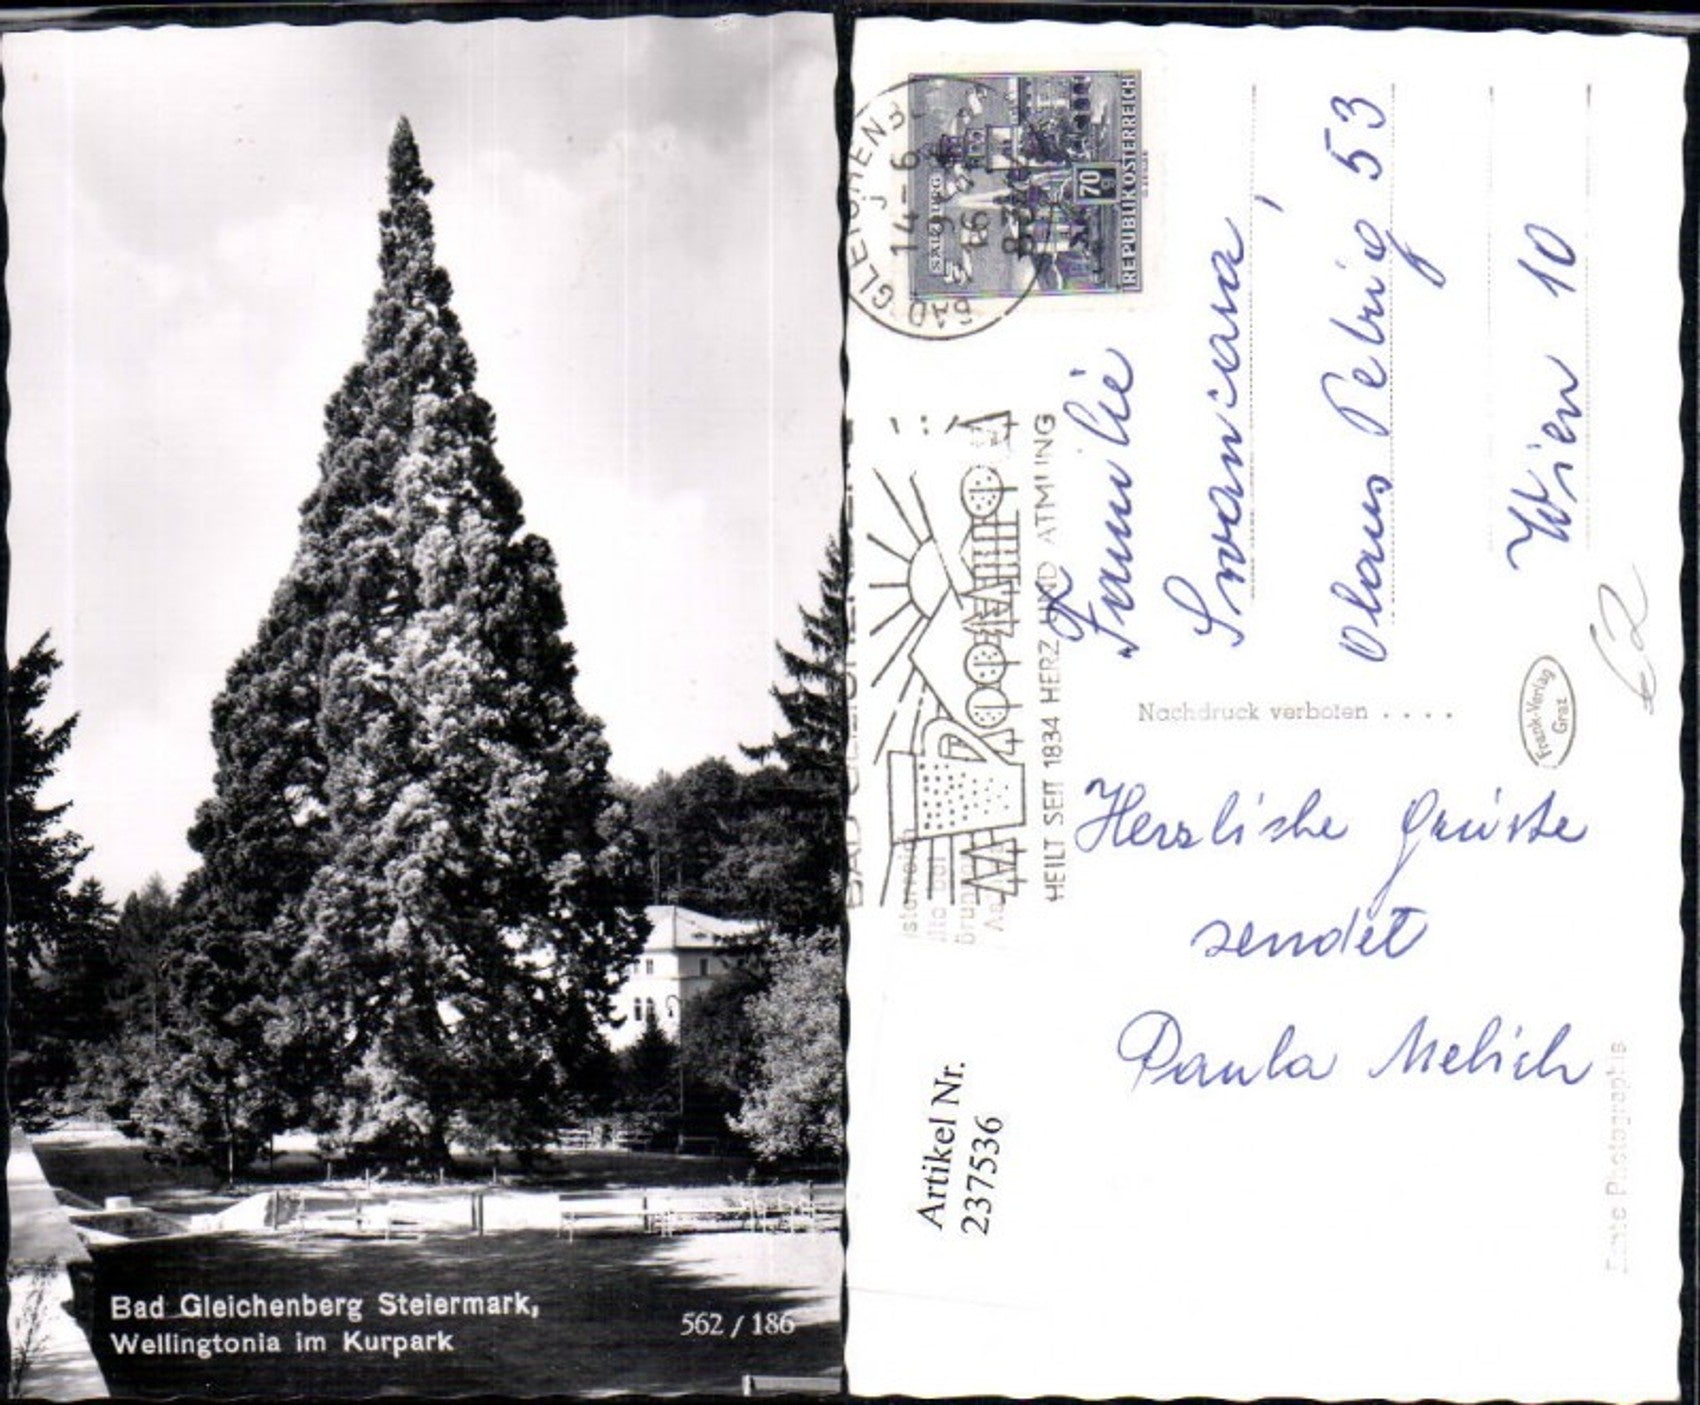 Bad Gleichenberg Steiermark,
Wellingtonia im Kurpark
562 / 186
REPUBLIK ÖSTERREICH
70
g
SALZBURG
14-6
HEILT SEIT 1834 HERZ UND ATMUNG
Familie
Wien 10
53
Nachdruck verboten . . . .
Frank-Verlag
Graz
Herzliche Grüsse
sendet
Paula Melich
Artikel Nr.
237536
Echte Photographie
€2